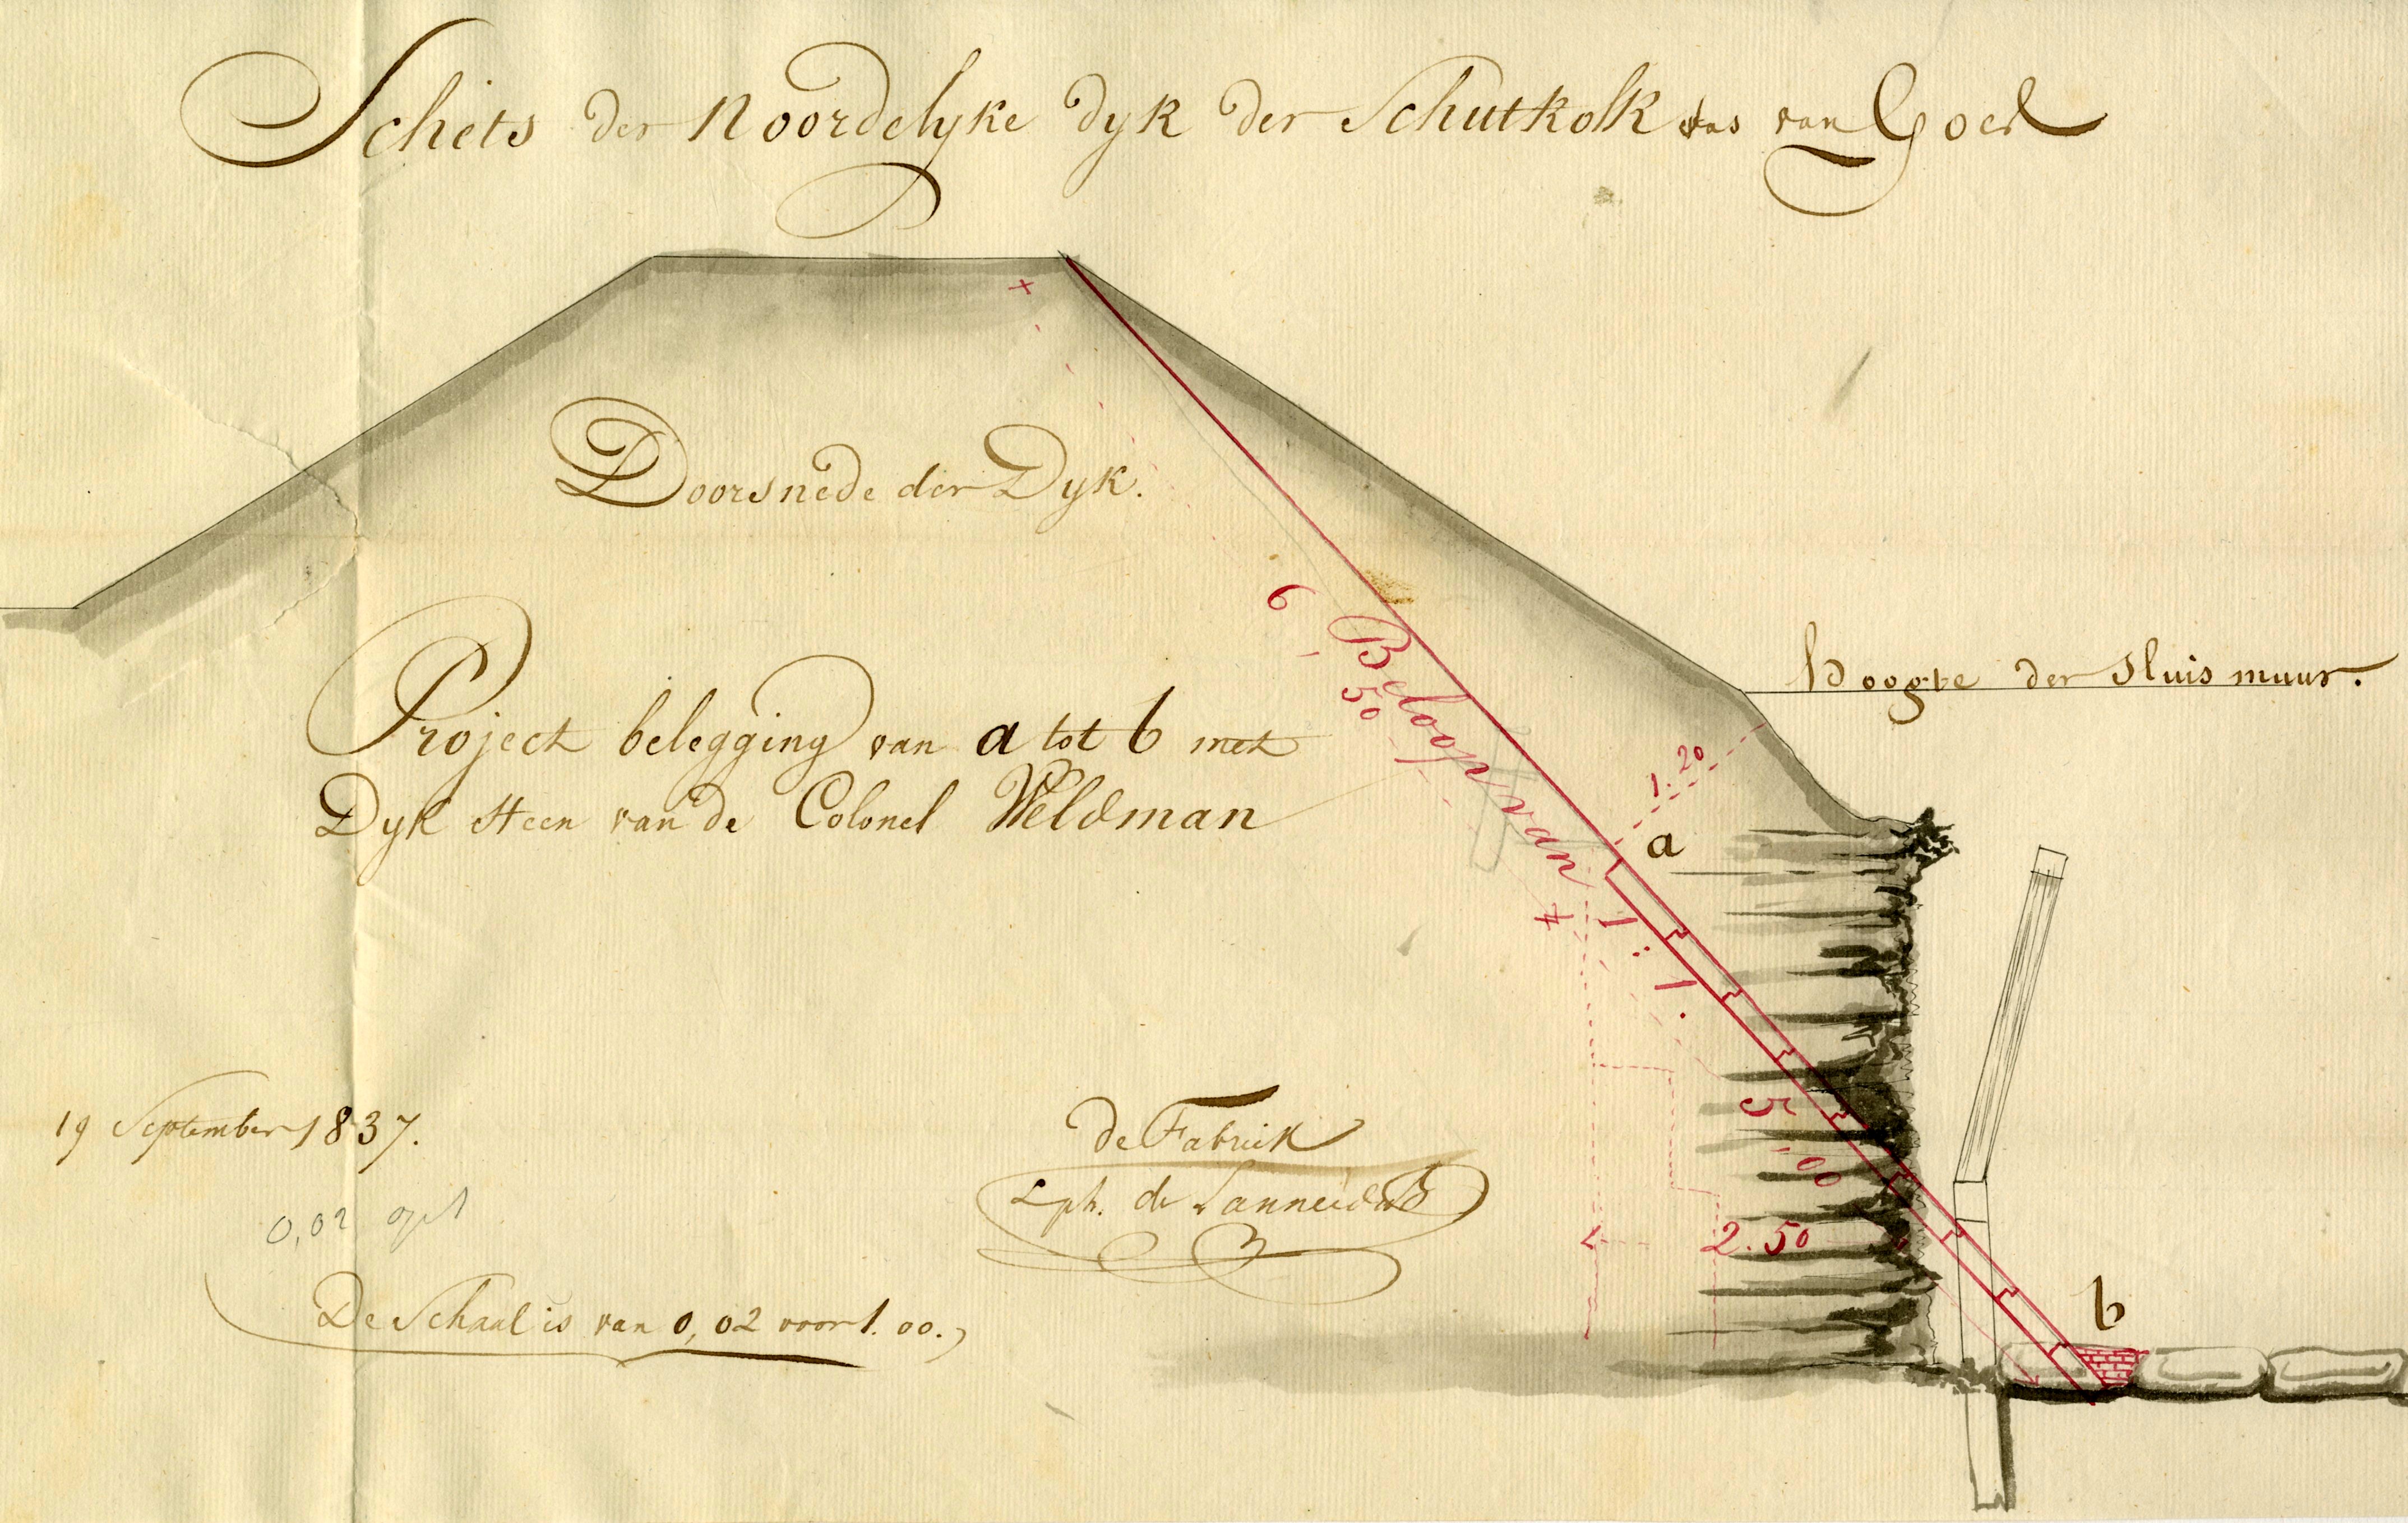 Schets der Noordelyke dyk der Schutkolk van Goes
Doorsnede der Dyk.
Hoogte der Sluis muur.
6,50
Beloop van 1:1.
1.20
a
Project belegging van a tot b met
Dyk steen van de Colonel Veldman
5,00
2.50
b
19 September 1837.
de Fabriek
Lph. de
0,02 op 1
De Schaal is van 0,02 voor 1.00.